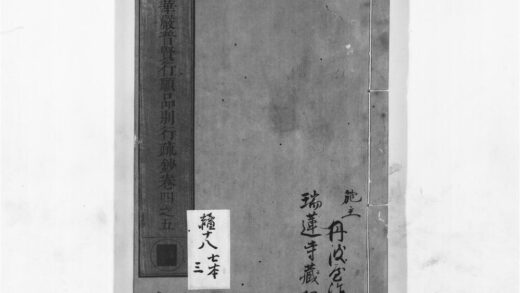 華嚴普賢行願品別行疏鈔卷四之五
施主 丹波屋
瑞蓮寺藏
十八 七本
三